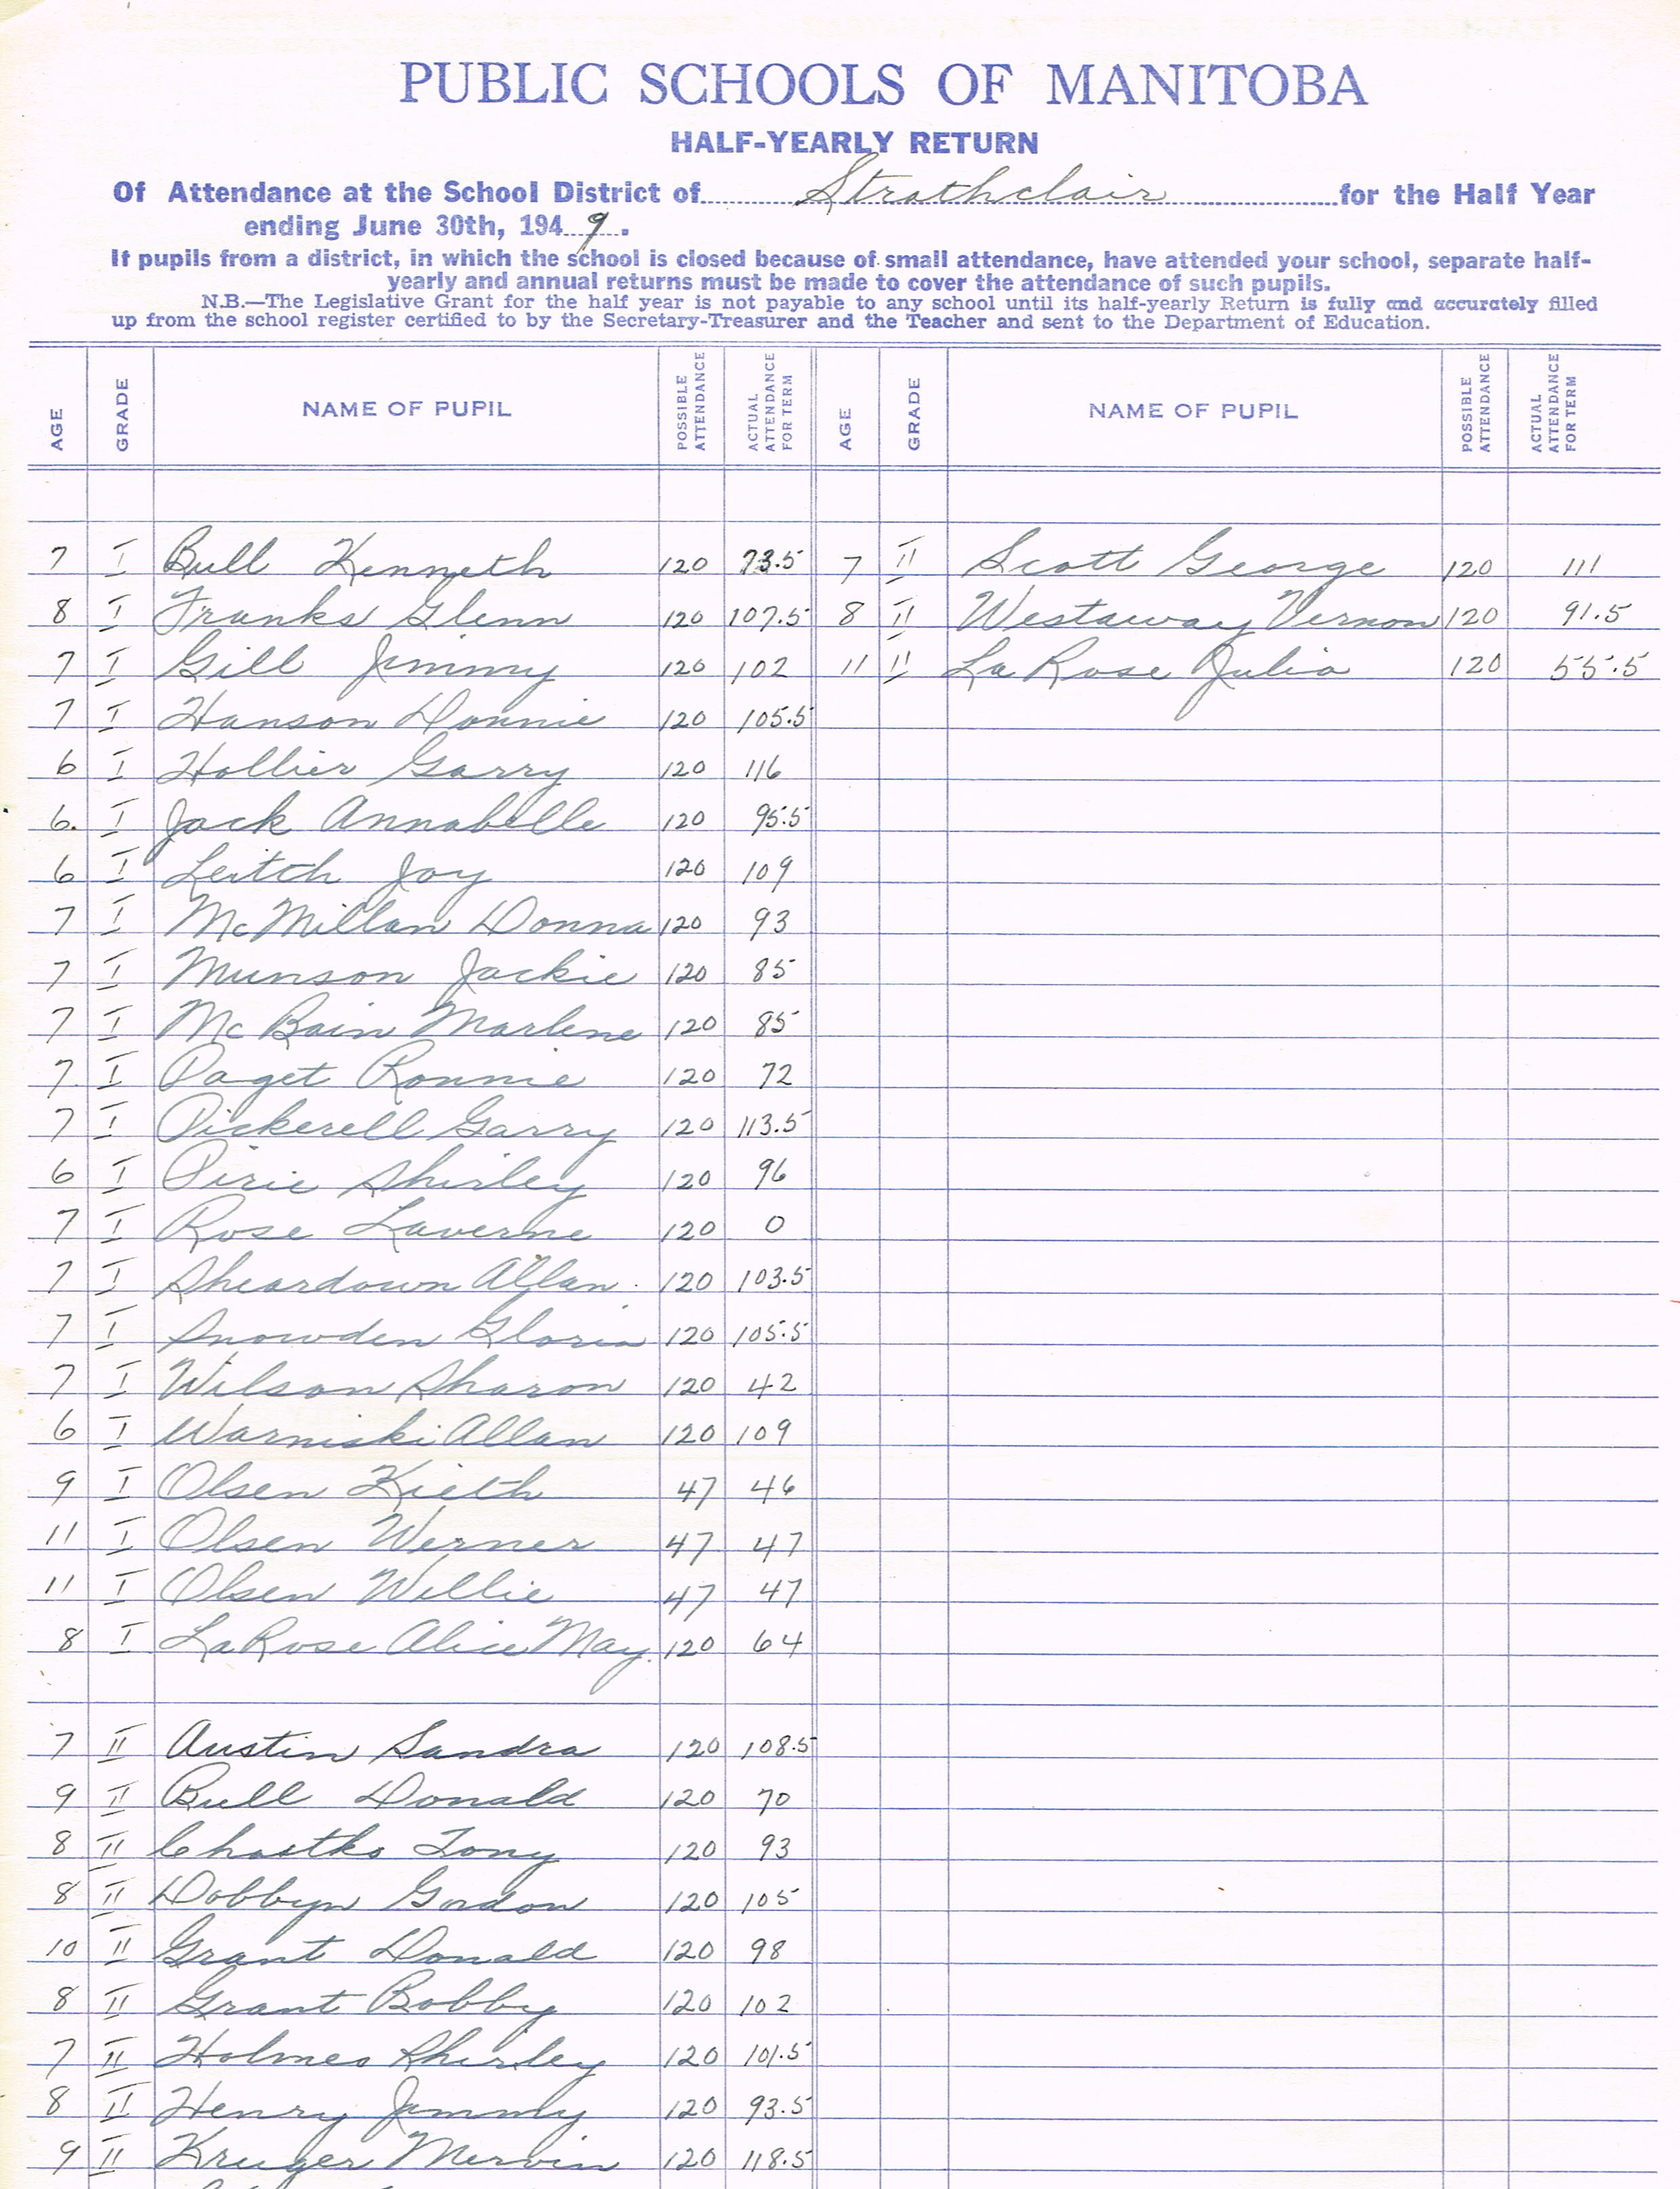 PUBLIC SCHOOLS OF MANITOBA
HALF-YEARLY RETURN
Of Attendance at the School District of Strathclair for the Half Year
ending June 30th, 1949.
If pupils from a district, in which the school is closed because of small attendance, have attended your school, separate half-
yearly and annual returns must be made to cover the attendance of such pupils.
N.B.—The Legislative Grant for the half year is not payable to any school until its half-yearly Return is fully and accurately filled
up from the school register certified to by the Secretary-Treasurer and the Teacher and sent to the Department of Education.
AGE GRADE NAME OF PUPIL POSSIBLE ATTENDANCE ACTUAL ATTENDANCE FOR TERM AGE GRADE NAME OF PUPIL POSSIBLE ATTENDANCE ACTUAL ATTENDANCE FOR TERM
7 I Bull Kenneth 120 73.5 7 II Scott George 120 111
8 I Franks Glenn 120 107.5 8 II Westaway Vernon 120 91.5
7 I Gill Jimmy 120 102 11 II La Rose Julia 120 55.5
7 I Hanson Donnie 120 105.5
6 I Hollier Garry 120 116
6. I Jack Annabelle 120 95.5
6 I Leitch Joy 120 109
7 I McMillan Donna 120 93
7 I Munson Jackie 120 85
7 I Mc Bain Marlene 120 85
7. I Paget Ronnie 120 72
7 I Pickerell Garry 120 113.5
6 I Pirie Shirley 120 96
7 I Rose Laverne 120 0
7 I Sheardown Allan 120 103.5
7 I Snowden Gloria 120 105.5
7 I Wilson Sharon 120 42
6 I Warniski Allan 120 109
9 I Olsen Kieth 47 46
11 I Olsen Werner 47 47
11 I Olsen Willie 47 47
8 I LaRose Alice May. 120 64
7 II Austin Sandra 120 108.5
9 II Bull Donald 120 70
8 II Chastko Tony 120 93
8 II Dobbyn Gordon 120 105
10 II Grant Donald 120 98
8 II Grant Bobby 120 102
7 II Holmes Shirley 120 101.5
8 II Henry Jimmy 120 93.5
9 II Kruger Mervin 120 118.5